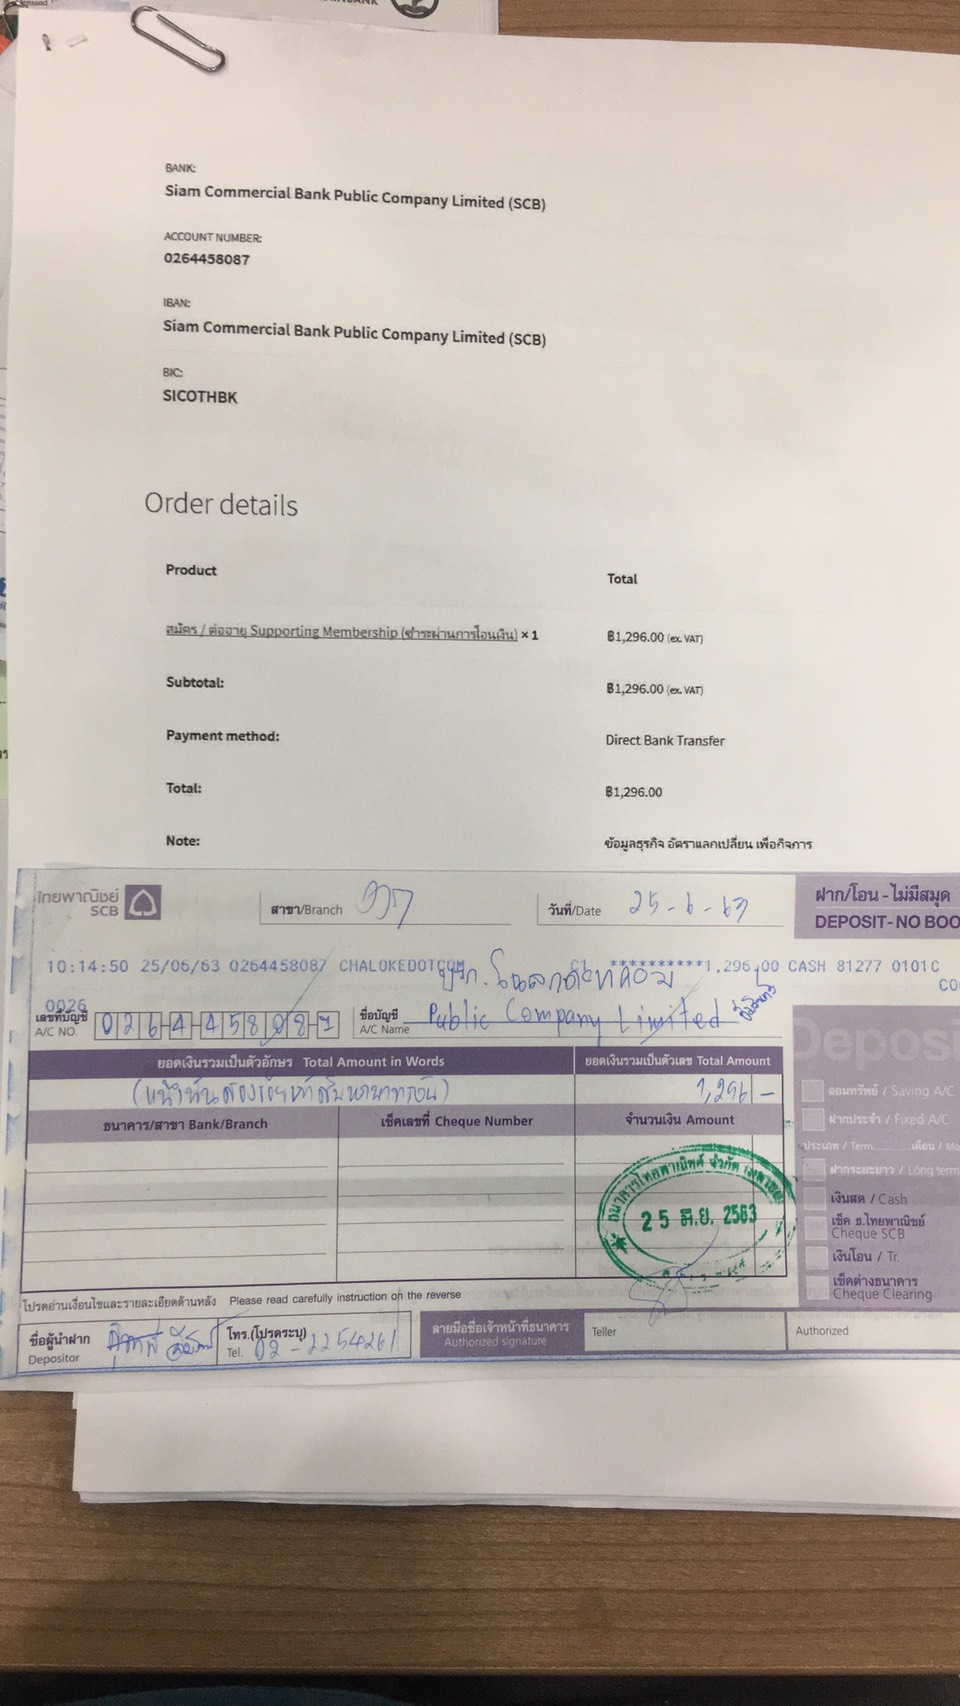 BANK:
Siam Commercial Bank Public Company Limited (SCB)
ACCOUNT NUMBER:
0264458087
IBAN:
Siam Commercial Bank Public Company Limited (SCB)
BIC:
SICOTHBK
Order details
Product Total
สมัคร / ต่ออายุ Supporting Membership (ชำระผ่านการโอนเงิน) × 1 ฿1,296.00 (ex. VAT)
Subtotal: ฿1,296.00 (ex. VAT)
Payment method: Direct Bank Transfer
Total: ฿1,296.00
Note: ข้อมูลธุรกิจ อัตราแลกเปลี่ยน เพื่อกิจการ
ไทยพาณิชย์
SCB
สาขา/Branch
วันที่/Date 25-6-63
ฝาก/โอน - ไม่มีสมุด
DEPOSIT - NO BOO
10:14:50 25/06/63 0264458087 CHALOKEDOTCOM **********1,296.00 CASH 81277 0101C
0026
เลขที่บัญชี
A/C NO. 026-4-45808-7
ชื่อบัญชี
A/C Name Public Company Limited
ยอดเงินรวมเป็นตัวอักษร Total Amount in Words ยอดเงินรวมเป็นตัวเลข Total Amount
(หนึ่งพันสองร้อยเก้าสิบหกบาทถ้วน) 1,296 -
ธนาคาร/สาขา Bank/Branch เช็คเลขที่ Cheque Number จำนวนเงิน Amount
Deposi
ออมทรัพย์ / Saving A/C
ฝากประจำ / Fixed A/C
ประเภท / Term เดือน / Mo
ฝากระยะยาว / Long term
เงินสด / Cash
เช็ค ธ.ไทยพาณิชย์
Cheque SCB
เงินโอน / Tr.
เช็คต่างธนาคาร
Cheque Clearing
ธนาคารไทยพาณิชย์ จำกัด
25 มิ.ย. 2563
โปรดอ่านเงื่อนไขและรายละเอียดด้านหลัง Please read carefully instruction on the reverse
ชื่อผู้นำฝาก
Depositor
โทร.(โปรดระบุ)
Tel. 02-2254261
ลายมือชื่อเจ้าหน้าที่ธนาคาร
Authorized signature
Teller
Authorized